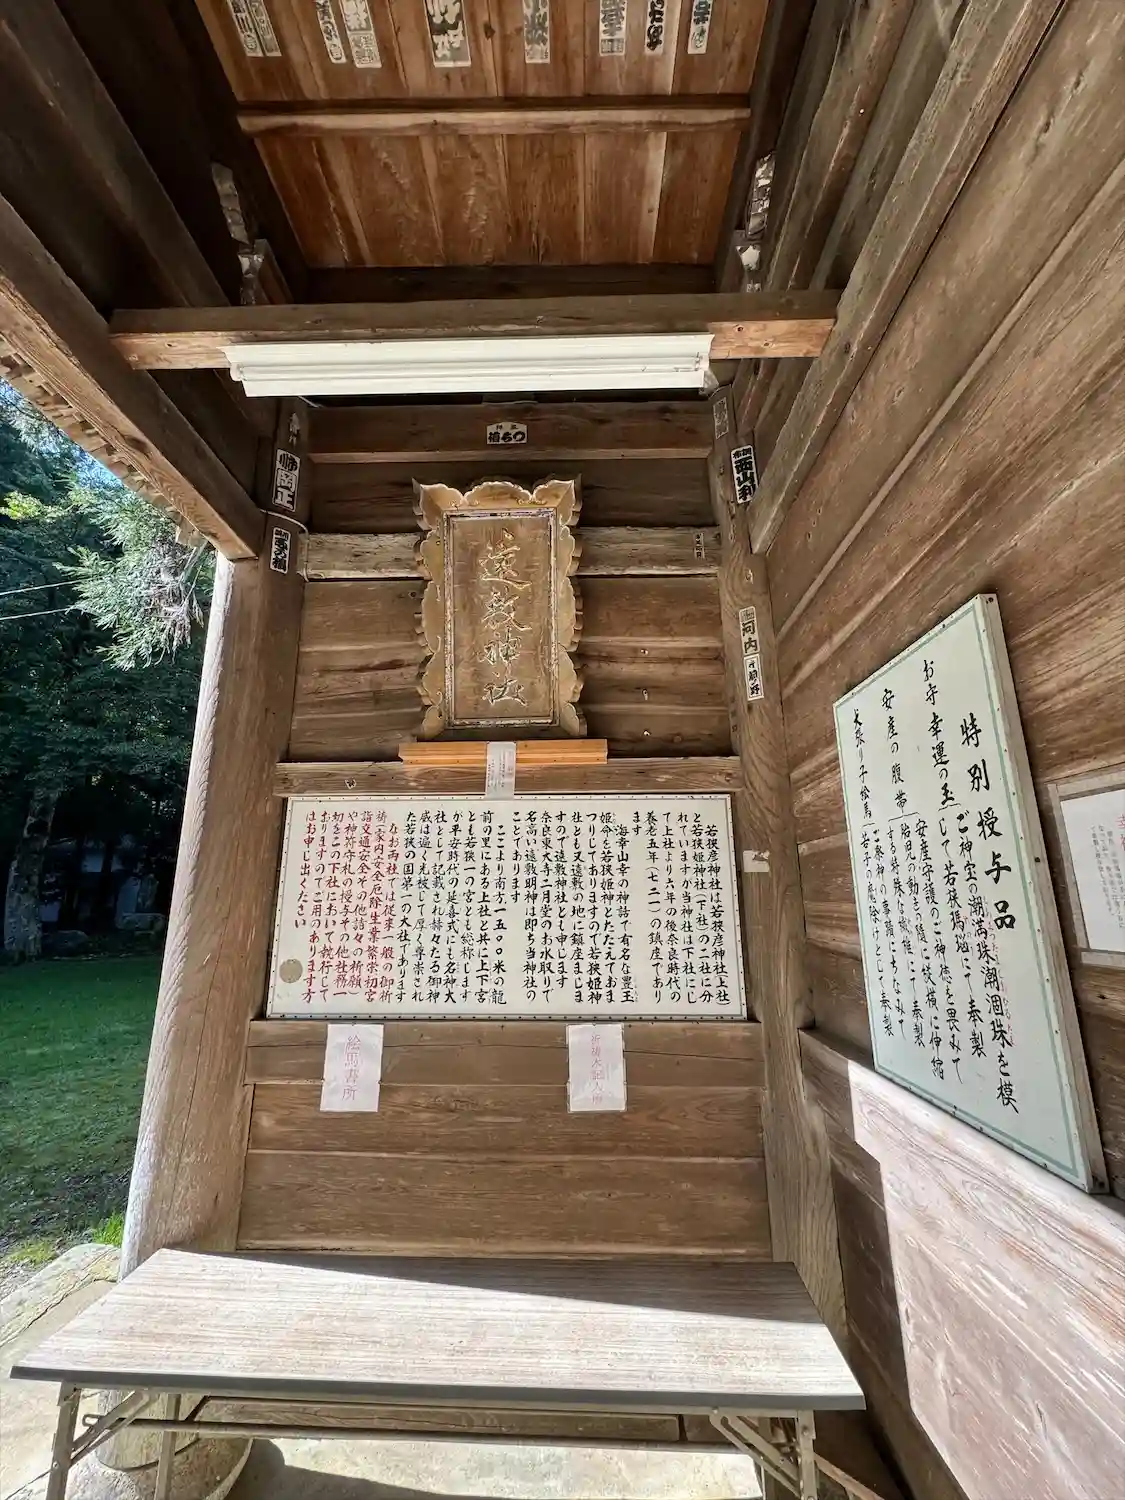 師岡正
西山利
河内
遠敷神社
若狭彦神社は若狭彦神社(上社)
と若狭姫神社(下社)の二社に分
れていますが当神社は下社にし
て上社より六年の後奈良時代の
養老五年(七二一)の鎮座であり
ます
海幸山幸の神話で有名な豊玉
姫命を若狭姫神とたたえておま
つりしてありますので若狭姫神
社とも又遠敷の地に鎮座まします
ので遠敷神社とも申します
奈良東大寺二月堂のお水取りで
名高い遠敷明神は即ち当神社の
ことであります
ここより南方一五〇〇米の龍
前の里にある上社と共に上下宮
とも若狭一の宮とも総称します
が平安時代の延喜式にも名神大
社として記載され赫々たる御神
威は遍く光被して厚く尊崇され
た若狭の国第一の大社であります
なお両社では従来一般の御祈
祷(家内安全厄除生業繁栄初宮
詣交通安全その他諸々の祈願)
や神符守札の授与その他社務一
切をこの下社において執行して
おりますのでご用のあります方
はお申し出ください
絵馬書所
特別授与品
お守 幸運の玉 ご神宝の潮満珠潮涸珠を模
して若狭瑪瑙にて奉製
安産の腹帯 安産守護のご神徳を畏みて
胎児の動きの随に縦横に伸縮
する特殊な織維にて奉製
犬張り子絵馬 ご祭神の事蹟にちなみて
若子の魔除けとして奉製